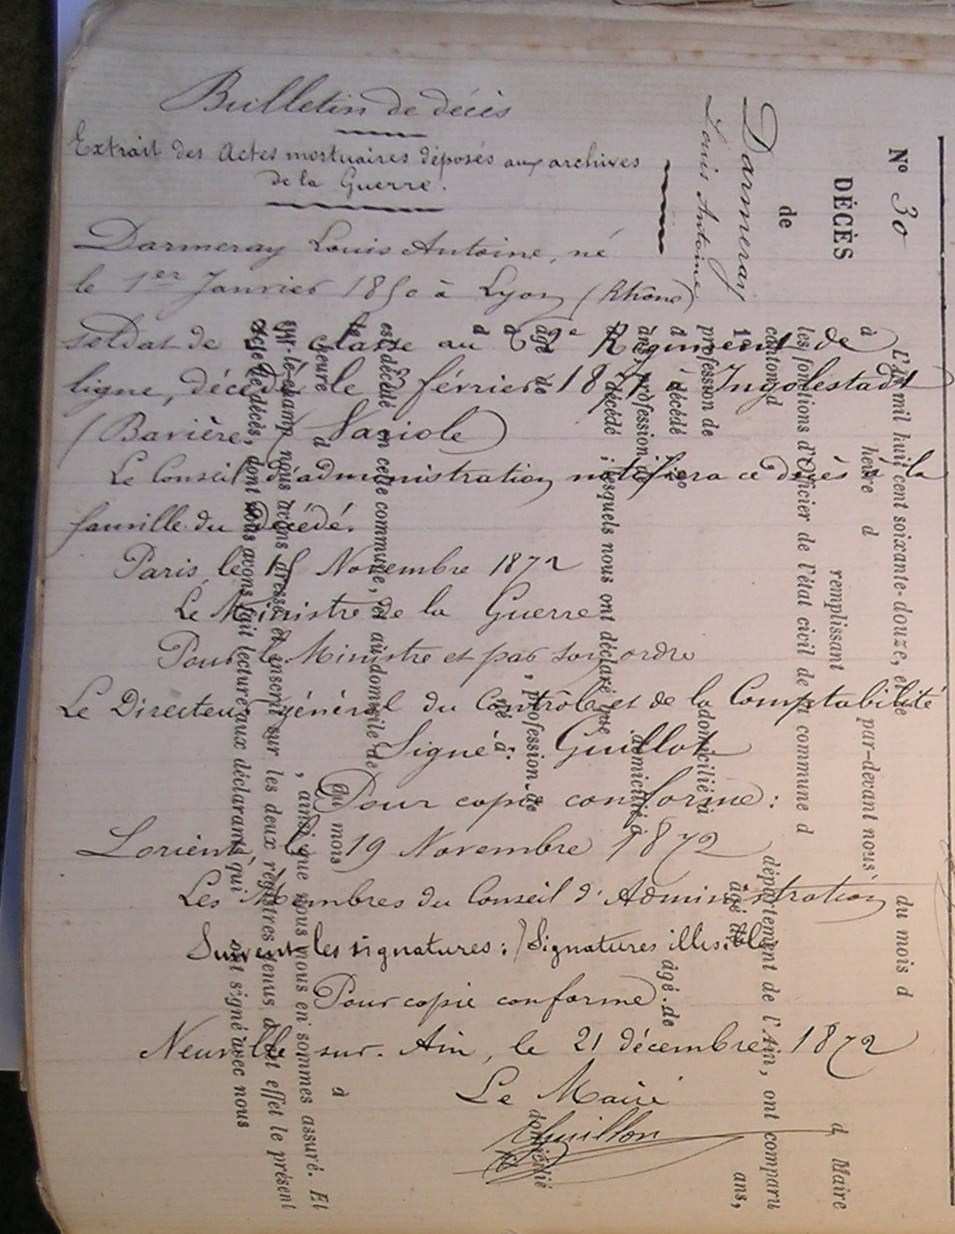 Bulletin de décès
Extrait des Actes mortuaires déposés aux archives
de la Guerre.
Darmeray Louis Antoine, né
le 1er Janvier 1850 à Lyon (Rhône)
soldat de 2e classe au 62e Régiment de
ligne, décédé le 3 février 1871 à Ingolestadt
(Bavière) (Variole)
Le Conseil d'administration notifiera ce décès à la
famille du décédé.
Paris, le 15 Novembre 1872
Le Ministre de la Guerre
Pour le Ministre et par son ordre
Le Directeur général du Contrôle et de la Comptabilité
Signé: Guillot
Pour copie conforme:
Lorient, le 19 Novembre 1872
Les Membres du Conseil d'Administration
Suivent les signatures: (Signatures illisibles
Pour copie conforme
Neuville sur Ain, le 21 décembre 1872
Le Maire
Guillon
No 30
DÉCÈS
de
Darmeray
Louis Antoine
L'an mil huit cent soixante-douze, et le du mois d
à heure d par-devant nous
remplissant d Maire
les fonctions d'Officier de l'état civil de la commune d
canton d département de l'Ain, ont comparu
1o âgé de ans,
profession de domicilié à
d décédé 2o âgé de
ans, profession de domicilié à
d décédé ; lesquels nous ont déclaré que
âgé de , profession de domicilié
à né à
d
est décédé en cette commune, et au domicile de
le du mois à
heure d , ainsi que nous nous en sommes assuré. Et
sur-le-champ nous avons dressé et inscrit sur les deux registres tenus à cet effet le présent
acte de décès, dont nous avons fait lecture aux déclarants qui ont signé avec nous